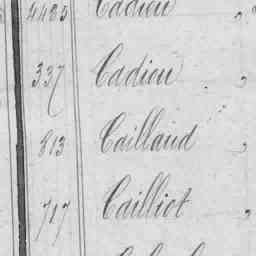 4485 Cadieu "
337 Cadieu "
813 Caillaud "
717 Cailliot "